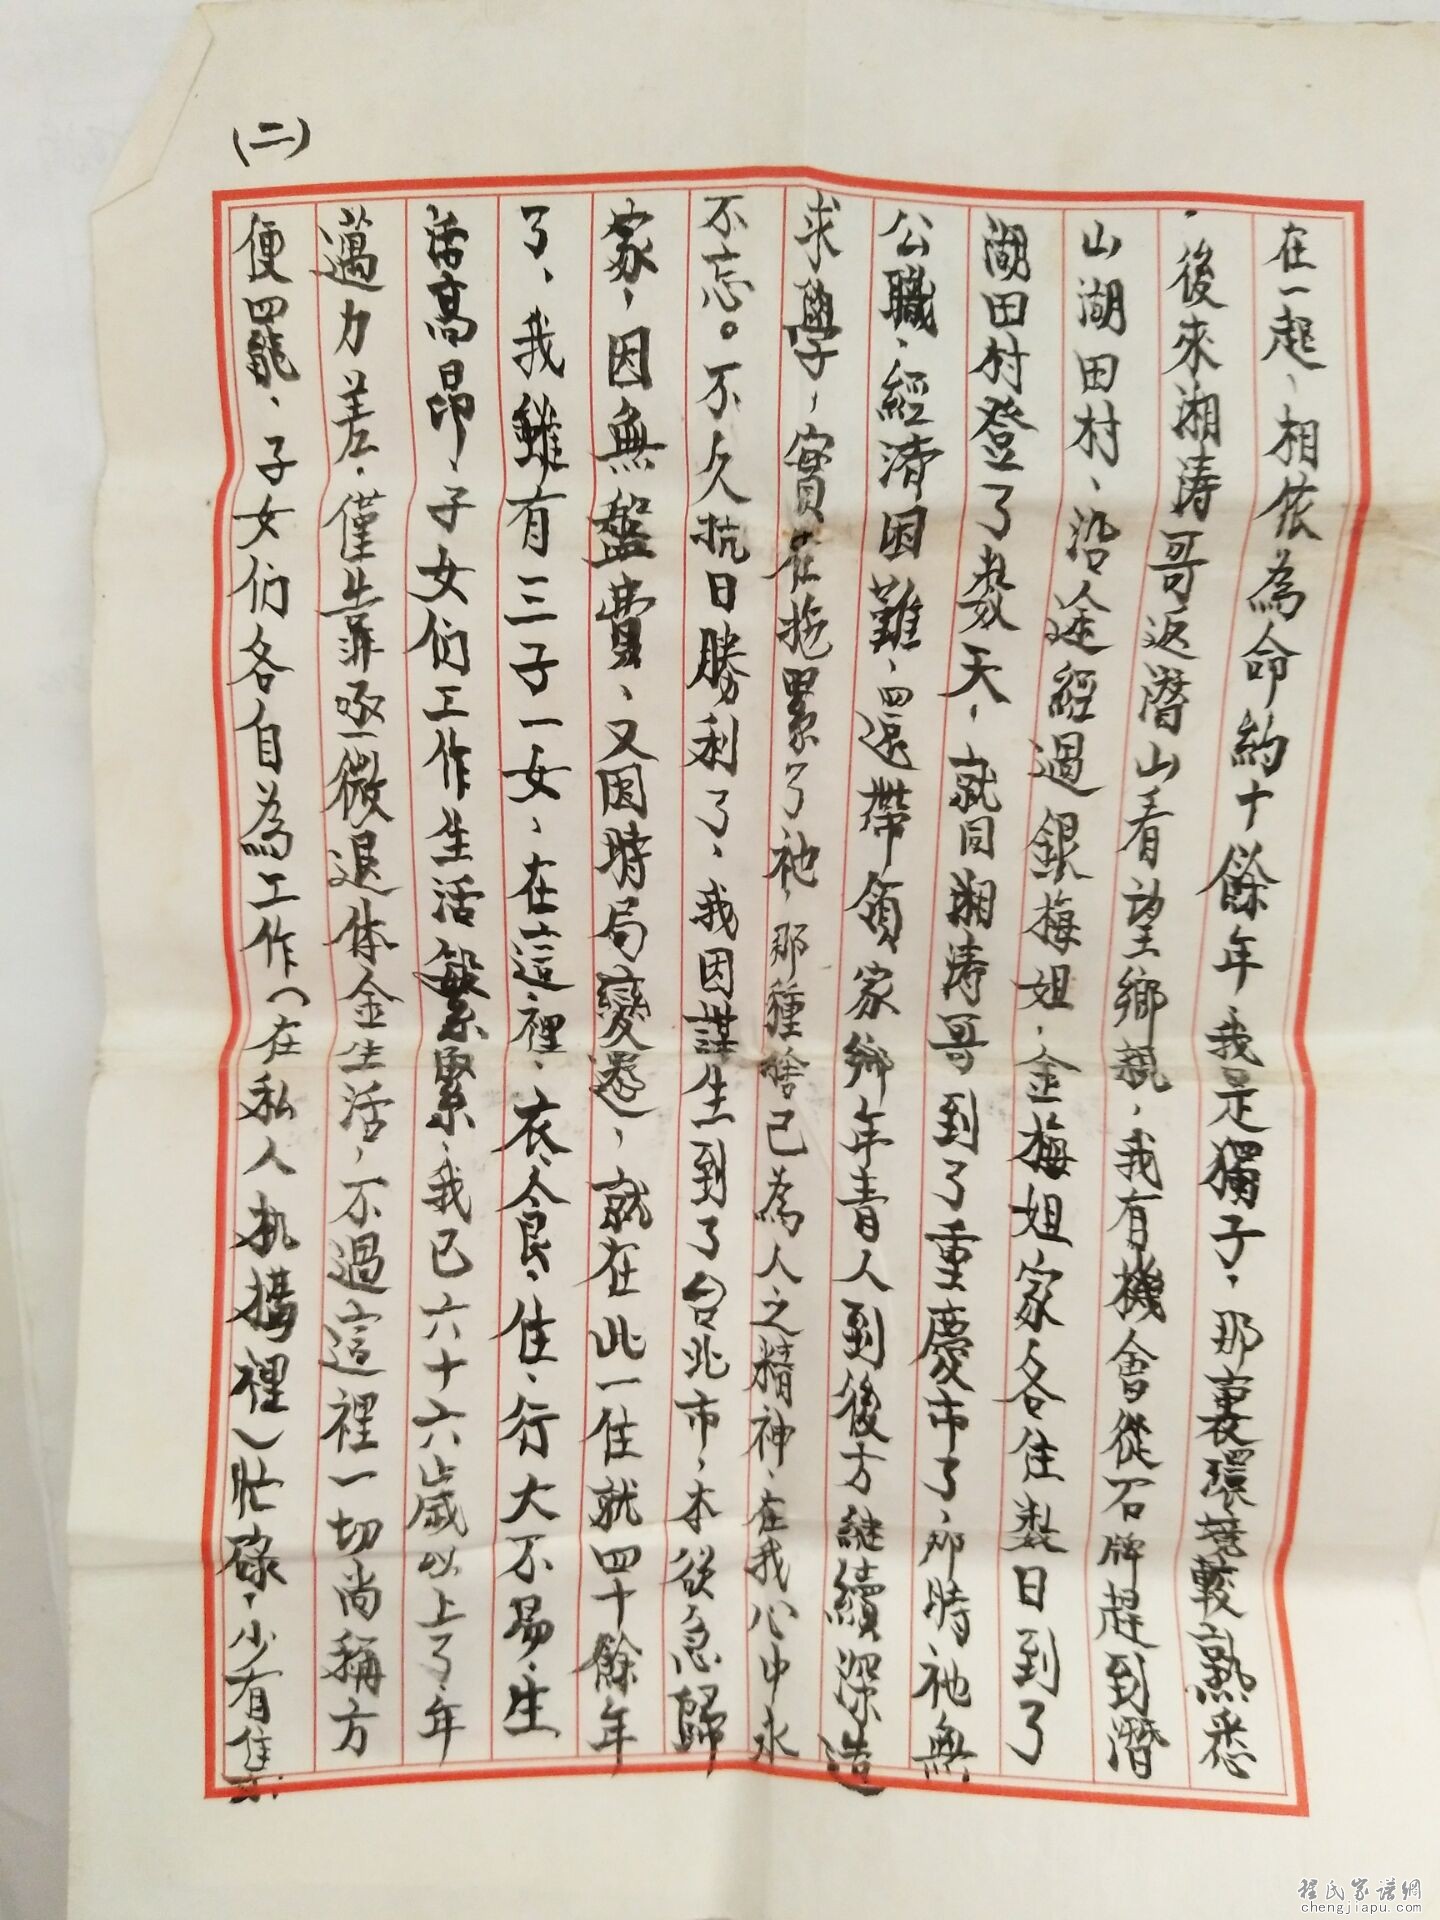 (二)
在一起、相依為命約十餘年、我是獨子，那裏環境較熟悉
，後來湘濤哥返潛山看望鄉親，我有機會從石牌趕到潛
山湖田村、沿途經過銀梅姐，金梅姐家各住数日到了
湖田村登了数天，就同湘濤哥到了重慶市了，那時祂無
公職，經濟困難，還帶領家鄉年青人到後方継續深造
求學，實在拖累了祂，那種捨己為人之精神，在我心中永
不忘。不久抗日勝利了，我因謀生到了台北市，本欲急歸
家，因無盤費、又因時局變遷，就在此一住就四十餘年
了、我雖有三子一女、在這裡、衣、食、住、行大不易，生
活高昂，子女们工作生活繁緊，我已六十六歲以上了，年
邁力差，僅靠亟微退休金生活，不過這裡一切尚稱方
便四能，子女们各自為工作(在私人机構裡)忙碌，少有住
家